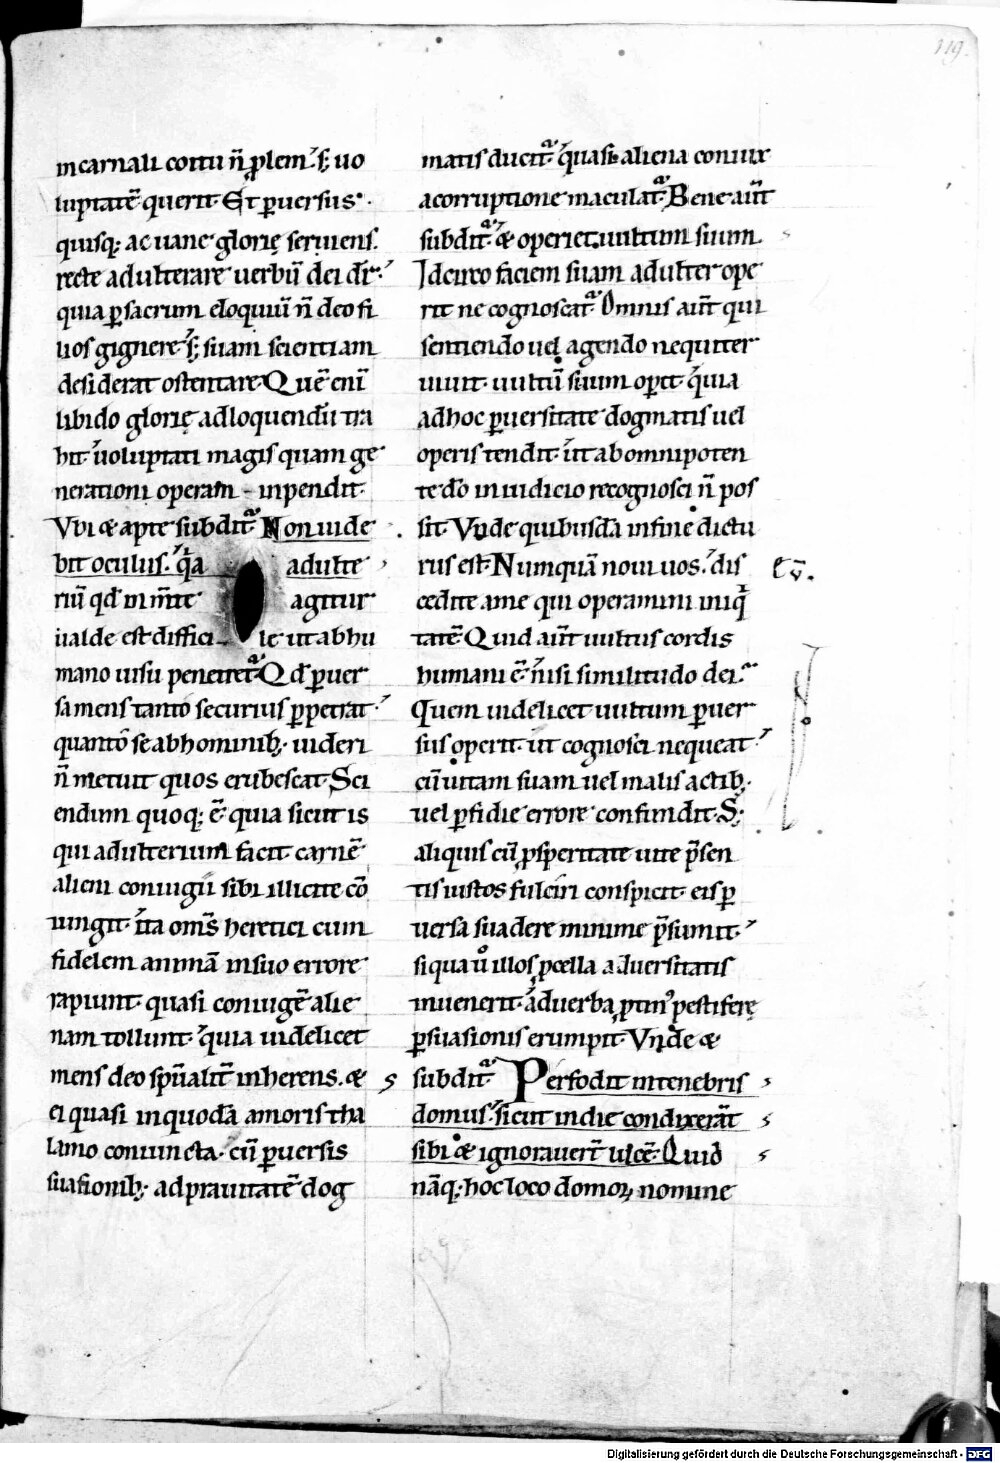 119.
in carnali coitu n̄ ꝓlem'. s; uo
luptatē querit. Et ꝑuersus
quisq; ac uanę glorię seruiens.
recte adulterare uerbū dei dr̄.
quia ꝑ sacrum eloquiū n̄ deo fi
lios gignere. s; suam scientiam
desiderat ostentare. Quē enī
libido glorię ad loquendū tra
hit. uoluptati magis quam ge
nerationi operam inpendit.
Vbi & apte subditᷓ. Non uide
bit oculus. qͥa adulte
riū qd̄ in m̄te agitur
ualde est diffici le ut ab hu
mano uisu penetretᷓ. Qd̄ ꝑuer
sa mens tanto securius ꝑpetrat.
quanto se ab hominib; uideri
n̄ metuit quos erubescat. Sci
endum quoq; ē. quia sicut is
qui adulterium facit. carnē
alieni coniugii sibi illicite cō
iungit. ita om̄s heretici cum
fidelem animā in suo errore
rapiunt. quasi coniugē alie
nam tollunt. quia uidelicet
mens deo spū̄alit̄ inherens. &
ei quasi in quodā amoris tha
lamo coniuncta. cū ꝑuersis
suasionib; ad prauitatē dog
matis ducitᷓ. quasi aliena coniux
a corruptione maculatᷓ. Bene aūt
subditᷓ. & operiet uultum suum.
Idcirco faciem suam adulter ope
rit ne cognoscatᷓ. Omnis aūt qui
sentiendo uel agendo nequiter
uiuit. uultū suum opit. quia
ad hoc ꝑuersitate dogmatis uel
operis tendit. ut ab omnipoten
te dō in iudicio recognosci n̄ pos
sit. Vnde quibusdā in fine dictu
rus est. Numquā noui uos. dis
cedite a me qui operamini iniqͥ
tatē. Quid aūt uultus cordis
humani ē. nisi similitudo dei.
Quem uidelicet uultum ꝑuer
sus operit. ut cognosci nequeat.
cū uitam suam uel malis actib;.
uel ꝑfidie errore confundit. S;
aliquis cū ꝓsꝑitate uite p̄sen
tis iustos fulciri conspicit. eis ꝑ
uersa suadere minime p̄sumit.
si qua ū̊ illos ꝓcella aduersitatis
inuenerit. ad uerba ꝓtin' pestiferę
ꝑsuasionis erumpit. Vnde &
subditᷓ. Perfodit in tenebris
domus. sicut in die condixerāt
sibi & ignorauert̄ lucē. Quid
nāq; hoc loco domoꝝ nomine
Digitalisierung gefördert durch die Deutsche Forschungsgemeinschaft - DFG